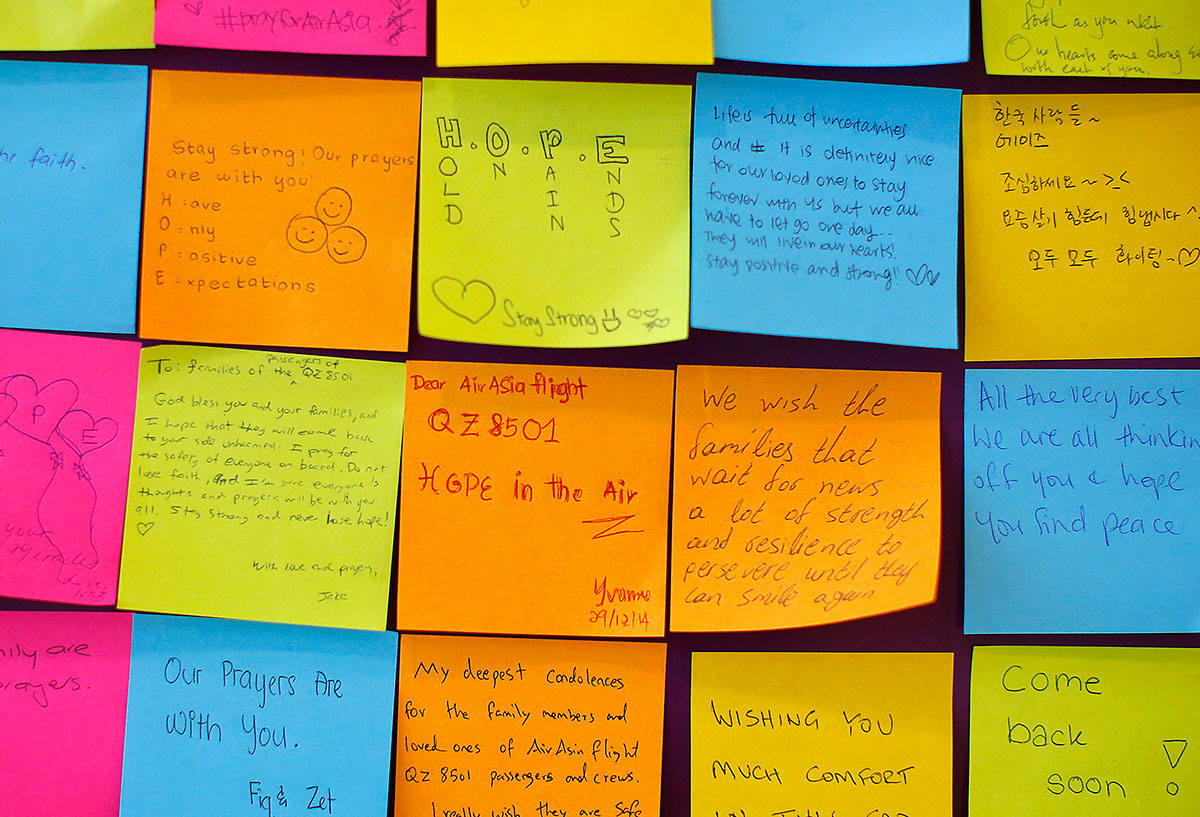 #prayforAirAsia
forth as you wait.
Our hearts come along
with each of you.
he faith.
Stay strong! Our prayers
are with you!
H : ave
O : nly
P : ositive
E : xpectations
H.O.P.E
HOLD
ON
PAIN
ENDS
Stay Strong
Life is full of uncertainties
and it is definitely nice
for our loved ones to stay
forever with us but we all
have to let go one day..
They will live in our hearts!
Stay positive and strong!
한국 사람들~
조심하세요~ >_<
요즘 살기 힘든데 힘냅시다 ^
모두 모두 화이팅~♡
P E
your
miracles
To: families of the passengers of QZ 8501
God bless you and your families, and
I hope that they will come back
to your side unharmed. I pray for
the safety of everyone on board. Do not
lose faith, and I'm sure everyone's
thoughts and prayers will be with you
all. Stay strong and never lose hope!
With love and prayers,
Jake
Dear AirAsia flight
QZ 8501
HOPE in the Air
Yvonne
29/12/14
We wish the
families that
wait for news
a lot of strength
and resilience to
persevere until they
can smile again
All the very best
We are all thinkin
off you & hope
you find peace
ily are
prayers.
Our Prayers Are
With You.
Fiq & Zet
My deepest condolences
for the family members and
loved ones of AirAsia flight
QZ 8501 passengers and crews.
I really wish they are safe
WISHING YOU
MUCH COMFORT
IN THIS
Come
back
soon!